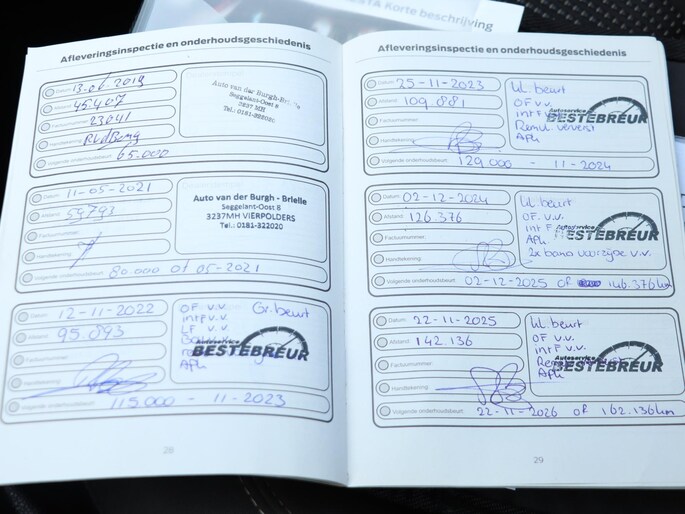 STA Korte beschrijving
Afleveringsinspectie en onderhoudsgeschiedenis
Datum: 13-06-2019
Afstand: 45.407
Factuurnummer: 23041
Handtekening:
Volgende onderhoudsbeurt: 65.000
Auto van der Burgh-Brielle
Seggelant-Oost 8
3237 MH
Tel.: 0181-322020
Datum: 11-05-2021
Afstand: 59793
Factuurnummer:
Handtekening:
Volgende onderhoudsbeurt: 80.000 of 05-2021
Auto van der Burgh - Brielle
Seggelant-Oost 8
3237MH VIERPOLDERS
Tel.: 0181-322020
Datum: 12-11-2022
Afstand: 95.893
Factuurnummer:
Handtekening:
Volgende onderhoudsbeurt: 115.000 - 11-2023
OF v.v. Gr.beurt
intF v.v.
LF v.v.
Autoservice
BESTEBREUR
APK
28
Afleveringsinspectie en onderhoudsgeschiedenis
Datum: 25-11-2023
Afstand: 109.881
Factuurnummer:
Handtekening:
Volgende onderhoudsbeurt: 129.000 - 11-2024
kl. beurt
OF v.v.
intF v.v.
Autoservice
BESTEBREUR
Remvl. ververst
Apk
Datum: 02-12-2024
Afstand: 126.376
Factuurnummer:
Handtekening:
Volgende onderhoudsbeurt: 02-12-2025 of 146.376km
kl. beurt
OF v.v.
int F v.v.
Autoservice
BESTEBREUR
Apk
2x band voorzijde v.v.
Datum: 22-11-2025
Afstand: 142.136
Factuurnummer:
Handtekening:
Volgende onderhoudsbeurt: 22-11-2026 of 162.136km
kl. beurt
OF v.v.
int F v.v.
Autoservice
BESTEBREUR
Apk
29